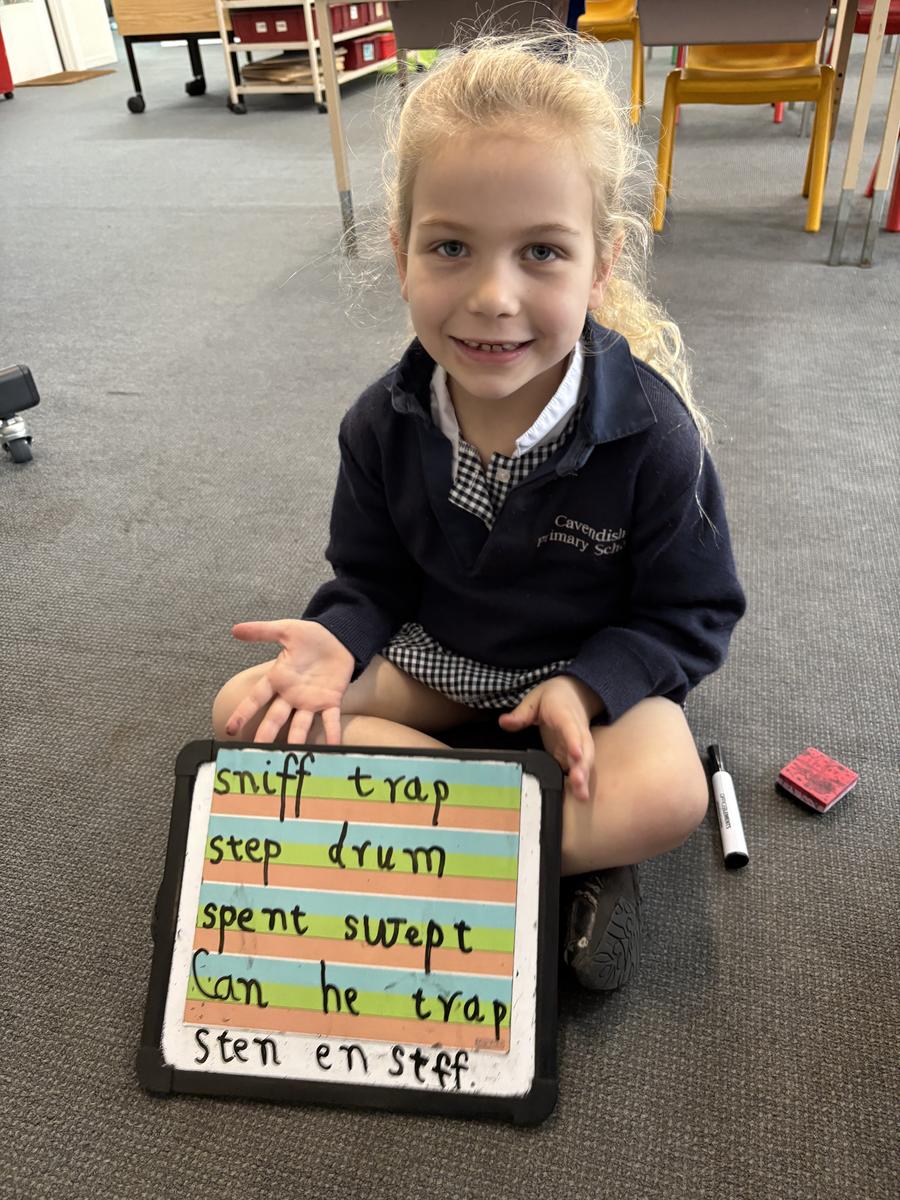 Cavendish
Primary Scho
sniff trap
step drum
spent swept
Can he trap
sten en stff.